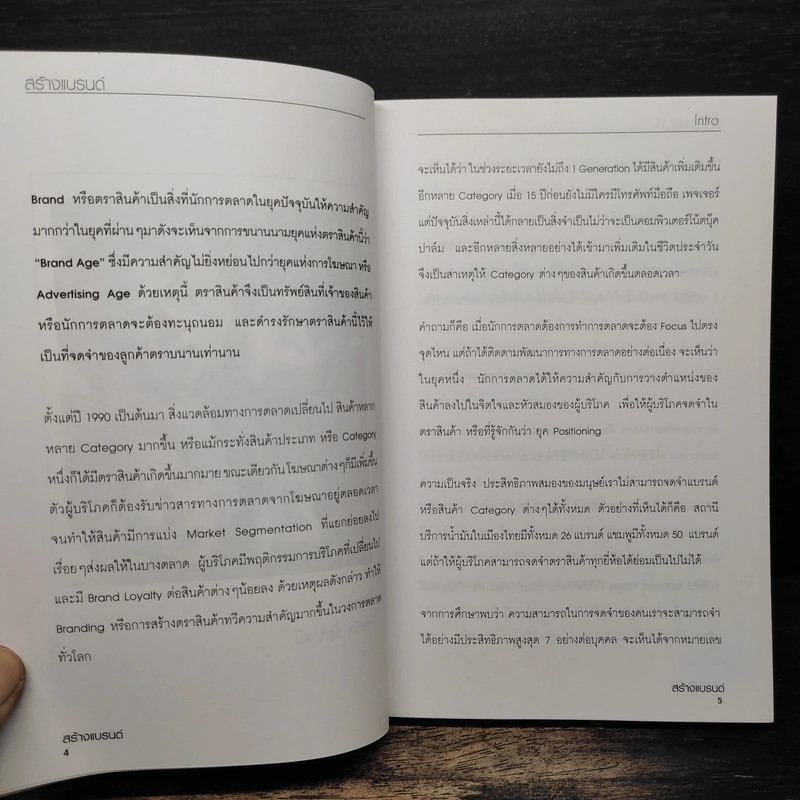 สร้างแบรนด์
Brand หรือตราสินค้าเป็นสิ่งที่นักการตลาดในยุคปัจจุบันให้ความสำคัญ
มากกว่าในยุคที่ผ่าน ๆมาดังจะเห็นจากการขนานนามยุคแห่งตราสินค้านี้ว่า
“Brand Age” ซึ่งมีความสำคัญไม่ยิ่งหย่อนไปกว่ายุคแห่งการโฆษณา หรือ
Advertising Age ด้วยเหตุนี้ ตราสินค้าจึงเป็นทรัพย์สินที่เจ้าของสินค้า
หรือนักการตลาดจะต้องทะนุถนอม และดำรงรักษาตราสินค้านี้ไว้ให้
เป็นที่จดจำของลูกค้าตราบนานเท่านาน
ตั้งแต่ปี 1990 เป็นต้นมา สิ่งแวดล้อมทางการตลาดเปลี่ยนไป สินค้าหลาก
หลาย Category มากขึ้น หรือแม้กระทั่งสินค้าประเภท หรือ Category
หนึ่งก็ได้มีตราสินค้าเกิดขึ้นมากมาย ขณะเดียวกัน โฆษณาต่างๆก็มีเพิ่มขึ้น
ตัวผู้บริโภคก็ต้องรับข่าวสารทางการตลาดจากโฆษณาอยู่ตลอดเวลา
จนทำให้สินค้ามีการแบ่ง Market Segmentation ที่แยกย่อยลงไป
เรื่อยๆส่งผลให้ในบางตลาด ผู้บริโภคมีพฤติกรรมการบริโภคที่เปลี่ยนไป
และมี Brand Loyalty ต่อสินค้าต่างๆน้อยลง ด้วยเหตุผลดังกล่าว ทำให้
Branding หรือการสร้างตราสินค้าทวีความสำคัญมากขึ้นในวงการตลาด
ทั่วโลก
สร้างแบรนด์
4
Intro
จะเห็นได้ว่า ในช่วงระยะเวลายังไม่ถึง 1 Generation ได้มีสินค้าเพิ่มเติมขึ้น
อีกหลาย Category เมื่อ 15 ปีก่อนยังไม่มีใครมีโทรศัพท์มือถือ เพจเจอร์
แต่ปัจจุบันสิ่งเหล่านี้ได้กลายเป็นสิ่งจำเป็นไม่ว่าจะเป็นคอมพิวเตอร์โน้ตบุ๊ค
ปาล์ม และอีกหลายสิ่งหลายอย่างได้เข้ามาเพิ่มเติมในชีวิตประจำวัน
จึงเป็นสาเหตุให้ Category ต่างๆของสินค้าเกิดขึ้นตลอดเวลา
คำถามก็คือ เมื่อนักการตลาดต้องการทำการตลาดจะต้อง Focus ไปตรง
จุดไหน แต่ถ้าได้ติดตามพัฒนาการทางการตลาดอย่างต่อเนื่อง จะเห็นว่า
ในยุคหนึ่ง นักการตลาดได้ให้ความสำคัญกับการวางตำแหน่งของ
สินค้าลงไปในจิตใจและหัวสมองของผู้บริโภค เพื่อให้ผู้บริโภคจดจำใน
ตราสินค้า หรือที่รู้จักกันว่า ยุค Positioning
ความเป็นจริง ประสิทธิภาพสมองของมนุษย์เราไม่สามารถจดจำแบรนด์
หรือสินค้า Category ต่างๆได้ทั้งหมด ตัวอย่างที่เห็นได้ก็คือ สถานี
บริการน้ำมันในเมืองไทยมีทั้งหมด 26 แบรนด์ แชมพูมีทั้งหมด 50 แบรนด์
แต่ถ้าให้ผู้บริโภคสามารถจดจำตราสินค้าทุกยี่ห้อได้ย่อมเป็นไปไม่ได้
จากการศึกษาพบว่า ความสามารถในการจดจำของคนเราจะสามารถจำ
ได้อย่างมีประสิทธิภาพสูงสุด 7 อย่างต่อบุคคล จะเห็นได้จากหมายเลข
สร้างแบรนด์
5